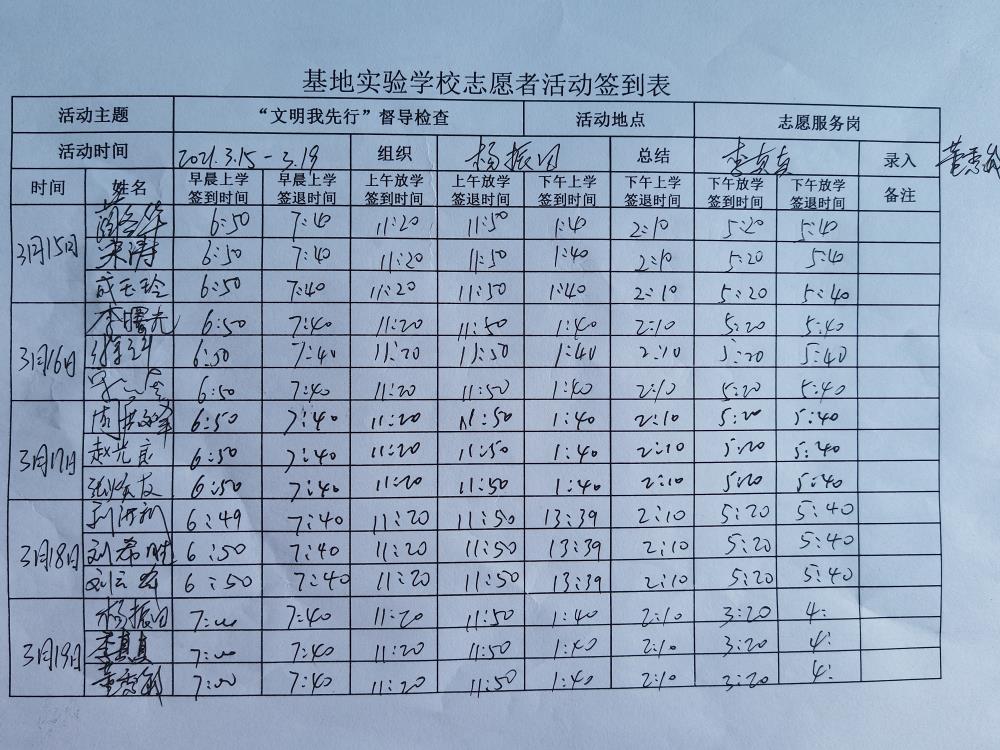 基地实验学校志愿者活动签到表
活动主题 “文明我先行”督导检查 活动地点 志愿服务岗
活动时间 2021.3.15-3.19 组织 杨振日 总结 李真真 录入 董秀敏
时间 姓名 早晨上学签到时间 早晨上学签退时间 上午放学签到时间 上午放学签退时间 下午上学签到时间 下午上学签退时间 下午放学签到时间 下午放学签退时间 备注
3月15日 6:50 7:40 11:20 11:50 1:40 2:10 5:20 5:40
宋涛 6:50 7:40 11:20 11:50 1:40 2:10 5:20 5:40
成玉玲 6:50 7:40 11:20 11:50 1:40 2:10 5:20 5:40
3月16日 李曙光 6:50 7:40 11:20 11:50 1:40 2:10 5:20 5:40
6:50 7:40 11:20 11:50 1:40 2:10 5:20 5:40
6:50 7:40 11:20 11:50 1:40 2:10 5:20 5:40
3月17日 6:50 7:40 11:20 11:50 1:40 2:10 5:20 5:40
赵光良 6:50 7:40 11:20 11:50 1:40 2:10 5:20 5:40
6:50 7:40 11:20 11:50 1:40 2:10 5:20 5:40
3月18日 6:49 7:40 11:20 11:50 13:39 2:10 5:20 5:40
刘希胜 6:50 7:40 11:20 11:50 13:39 2:10 5:20 5:40
6:50 7:40 11:20 11:50 13:39 2:10 5:20 5:40
3月19日 杨振日 7:00 7:40 11:20 11:50 1:40 2:10 3:20 4:
李真真 7:00 7:40 11:20 11:50 1:40 2:10 3:20 4:
董秀敏 7:00 7:40 11:20 11:50 1:40 2:10 3:20 4: